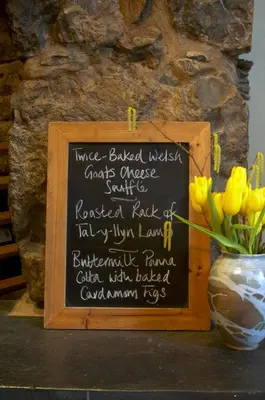 Twice-Baked Welsh
Goats Cheese
Souffle
Roasted Rack of
Tal-y-llyn Lamb
Buttermilk Panna
Cotta with baked
Cardamom Figs